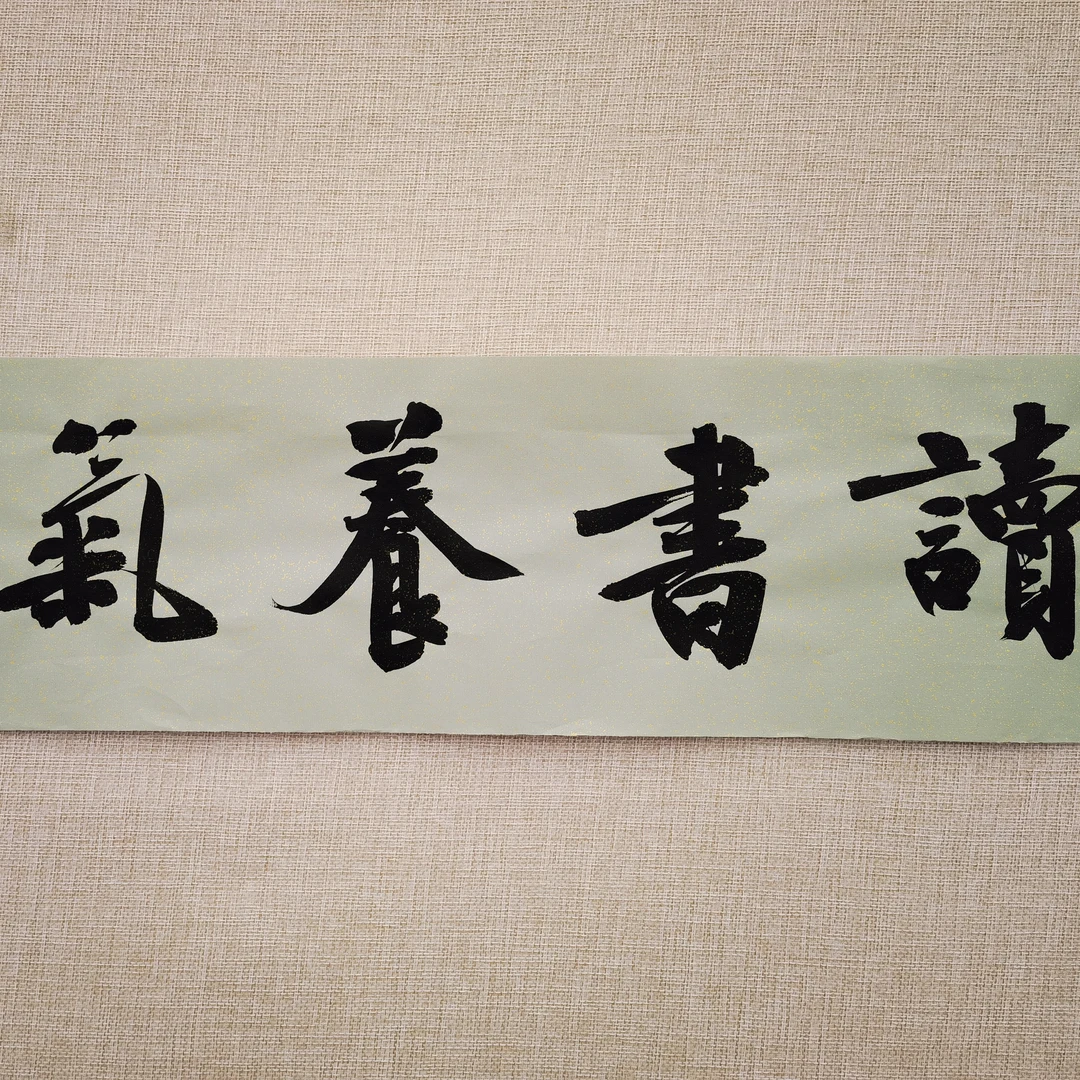 讀書養氣